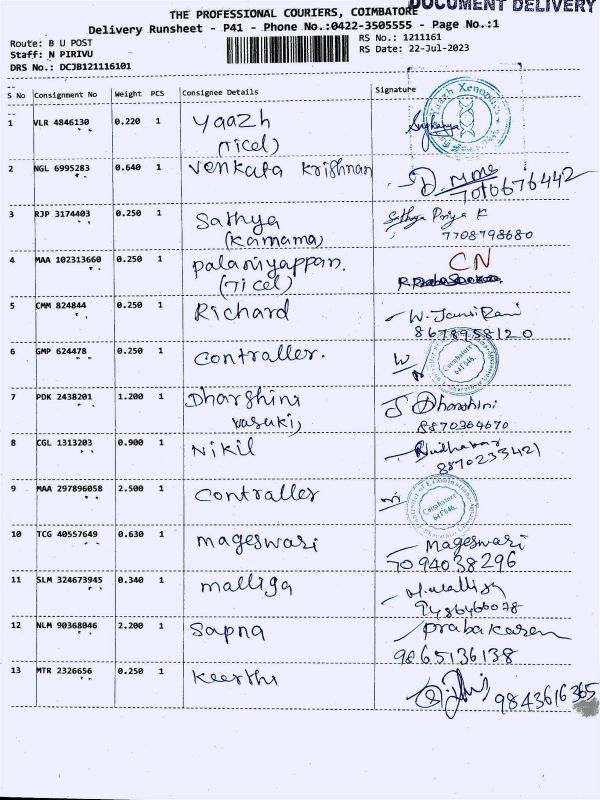 DOCUMENT DELIVERY
THE PROFESSIONAL COURIERS, COIMBATORE
Delivery Runsheet - P41 - Phone No.:0422-3505555 - Page No.:1
Route: B U POST
Staff: N PIRIVU
DRS No.: DCJB121116101
RS No.: 1211161
RS Date: 22-Jul-2023
S No Consignment No Weight PCS Consignee Details Signature
1 VLR 4846130 0.220 1 Yaazh
(Ticel)
2 NGL 6995283 0.640 1 Venkata Krishnan
7010676442
3 RJP 3174403 0.250 1 Sathya Sathya Priya K
(Kamama) 7708798680
4 MAA 102313660 0.250 1 Palaniyappan. CN
(Ticel)
5 CMM 824844 0.250 1 Richard W. Jansi Rani
8678958120
6 GMP 624478 0.250 1 Contraller. Coimbatore
641 046.
7 PDK 2438201 1.200 1 Dharshini J Dharshini
Vasuki) 8870364670
8 CGL 1313203 0.900 1 Nikil
8870233421
9 MAA 297896058 2.500 1 Contraller Coimbatore
641 046.
10 TCG 40557649 0.630 1 Mageswari Mageswari
7094038296
11 SLM 324673945 0.340 1 Malliga M. Malliga
9486466078
12 NLM 90368046 2.200 1 Sapna Prabakaren
9865136138
13 MTR 2326656 0.250 1 Keerthi
9843616365